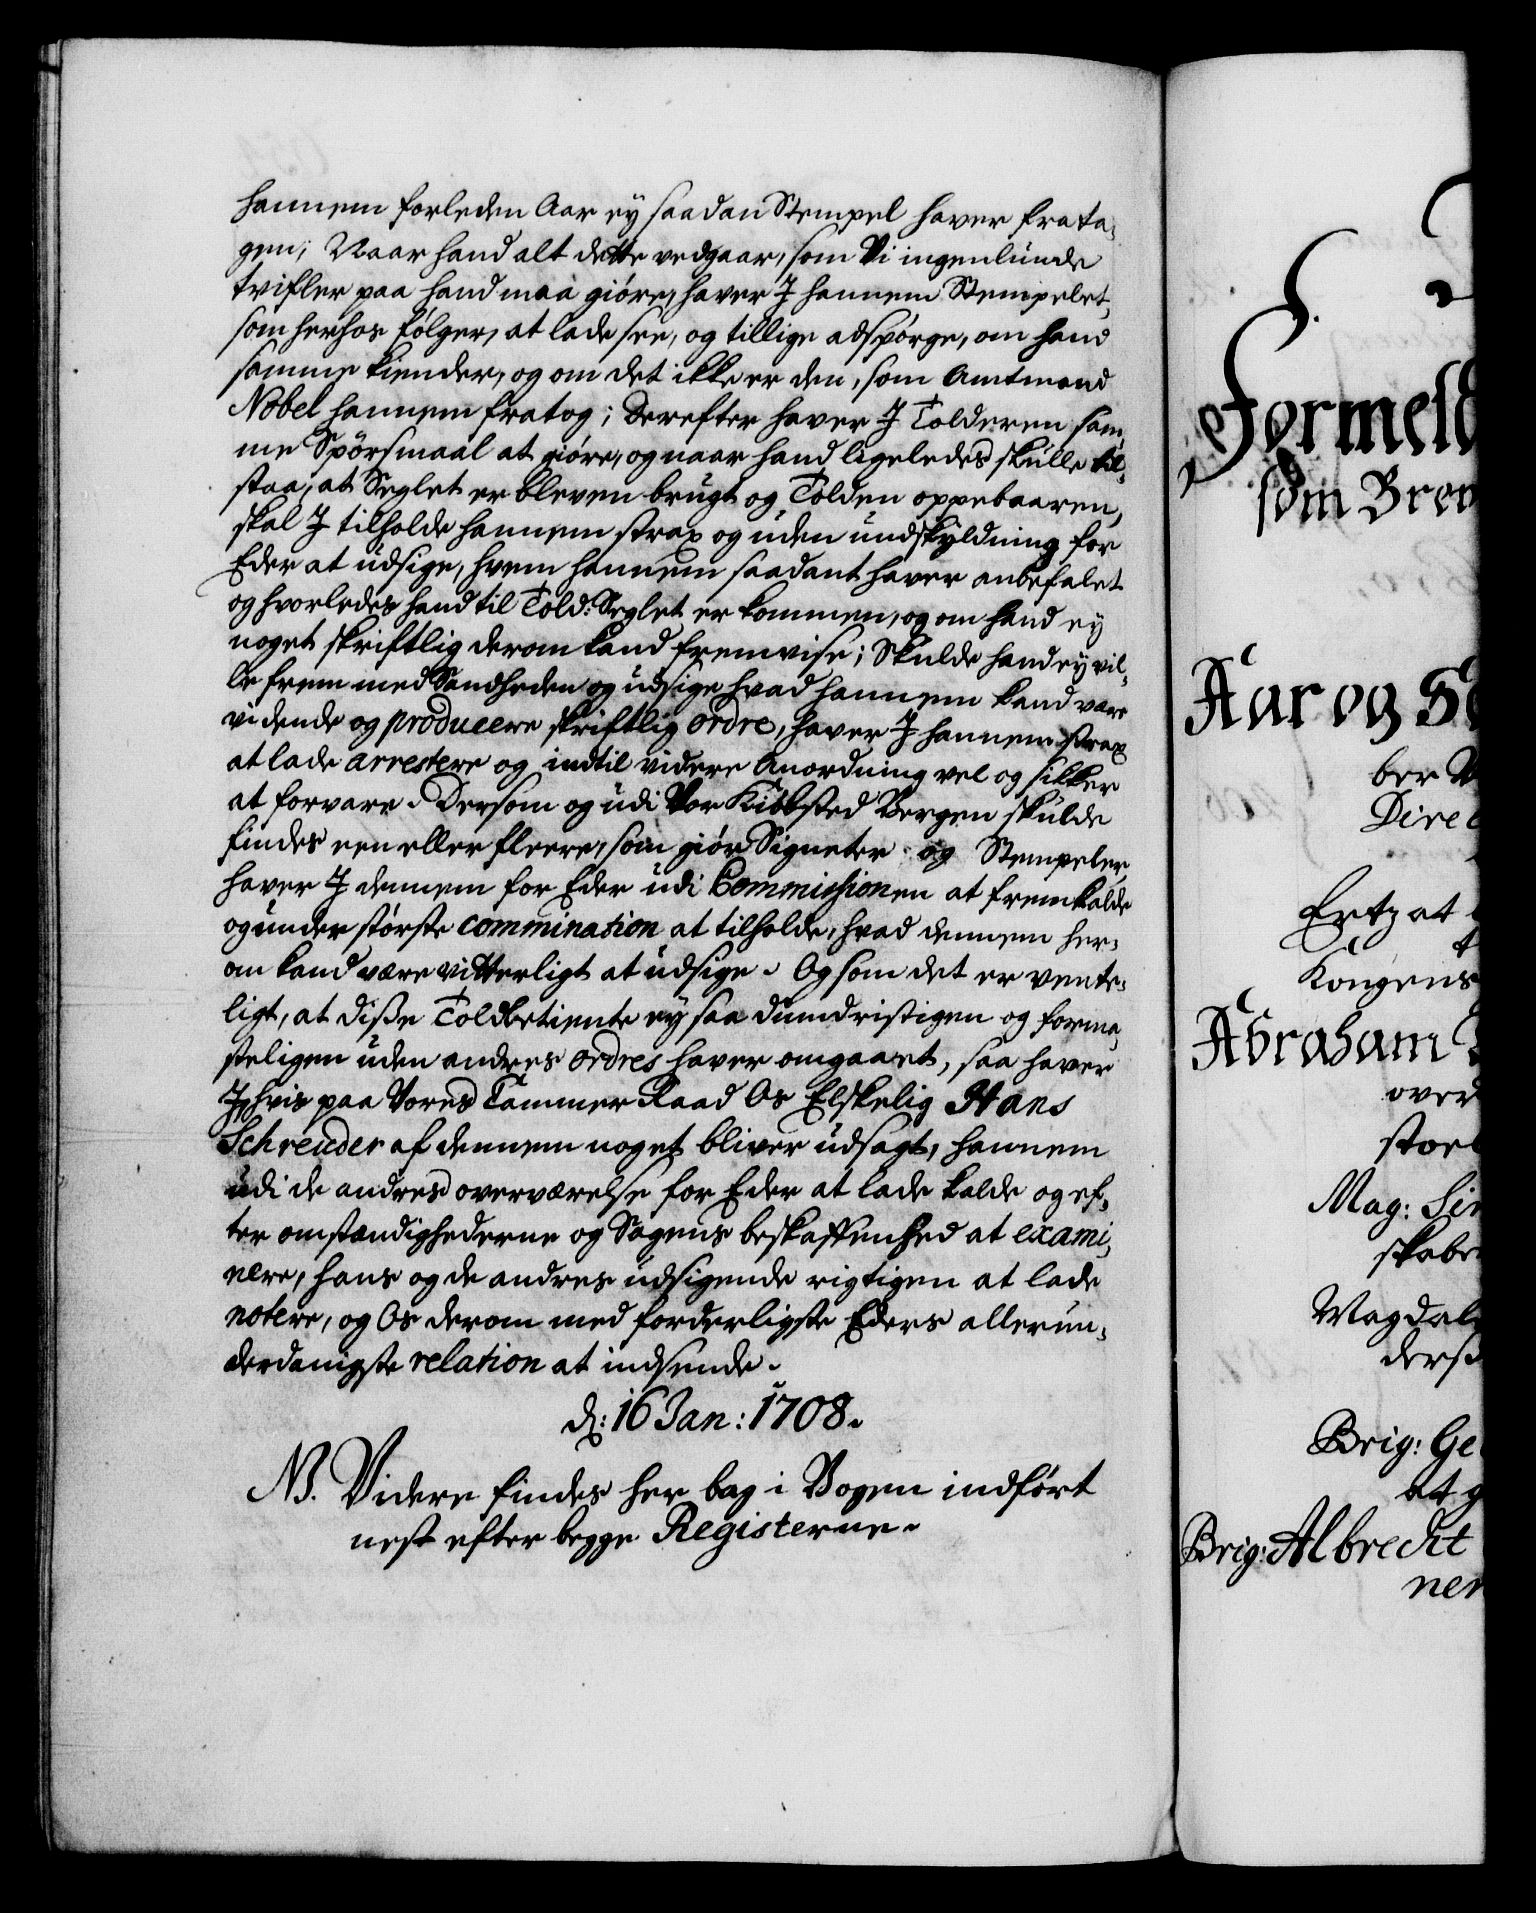 hannem forleden Aar ey saadan Stempel haver frata-
gen; Naar hand alt dette vedgaar, som Vi ingenlunde
tvifler paa hand maa giøre, haver I hannem Stempelet,
som herhos følger, at lade see, og tillige adspørge, om hand
samme kiender, og om det ikke er den, som Amtmand
Nobel hannem fratog; Derefter haver I Tolderen sam-
me Spørsmaal at giøre, og naar hand ligeledes skulle til-
staa, at Seglet er bleven brugt og Tolden oppebaaren,
skal I tilholde hannem strax og uden undskyldning for
Eder at udsige, hvem hannem saadant haver anbefalet
og hvorledes hand til Told-Seglet er kommen, og om hand ey
noget skriftlig derom kand fremvise; Skulde hand ey vil-
le frem med Sandheden og udsige hvad hannem kand være
vidende og producere skriftlig ordre, haver I hannem strax
at lade arrestere og indtil videre Anordning vel og sikker
at forvare. Dersom og udi Vor Kiøbsted Bergen skulde
findes een eller fleere, som giør Signeter og Stempeler
haver I dennem for Eder udi Commissionen at fremkalde
og under største commination at tilholde, hvad dennem her-
om kand være vitterligt at udsige. Og som det er vente-
ligt, at disse Toldbetiente ey saa dumdristigen og forma-
steligen uden andres ordres haver omgaaet, saa haver
I, hvis paa Vores Cammer Raad Os Elskelig Hans
Schreuder af dennem noget bliver udsagt, hannem
udi de andres overværelse for Eder at lade kalde og ef-
ter omstændighederne og Sagens beskaffenhed at exami-
nere, hans og de andres udsigende rigtigen at lade
notere, og Os derom med forderligste Eders allerun-
derdanigste relation at indsende.
d: 16 Jan: 1708.
NB. Videre findes her bag i Bogen indført
nest efter begge Registerne.
Formeld
som Brev
Aar og
ber
Direc
Ertz at
Kongens
Abraham
over
stoel
Mag:
skabe
Magdal
ders
Brig: Ge
at g
Brig: Albrecht
ner